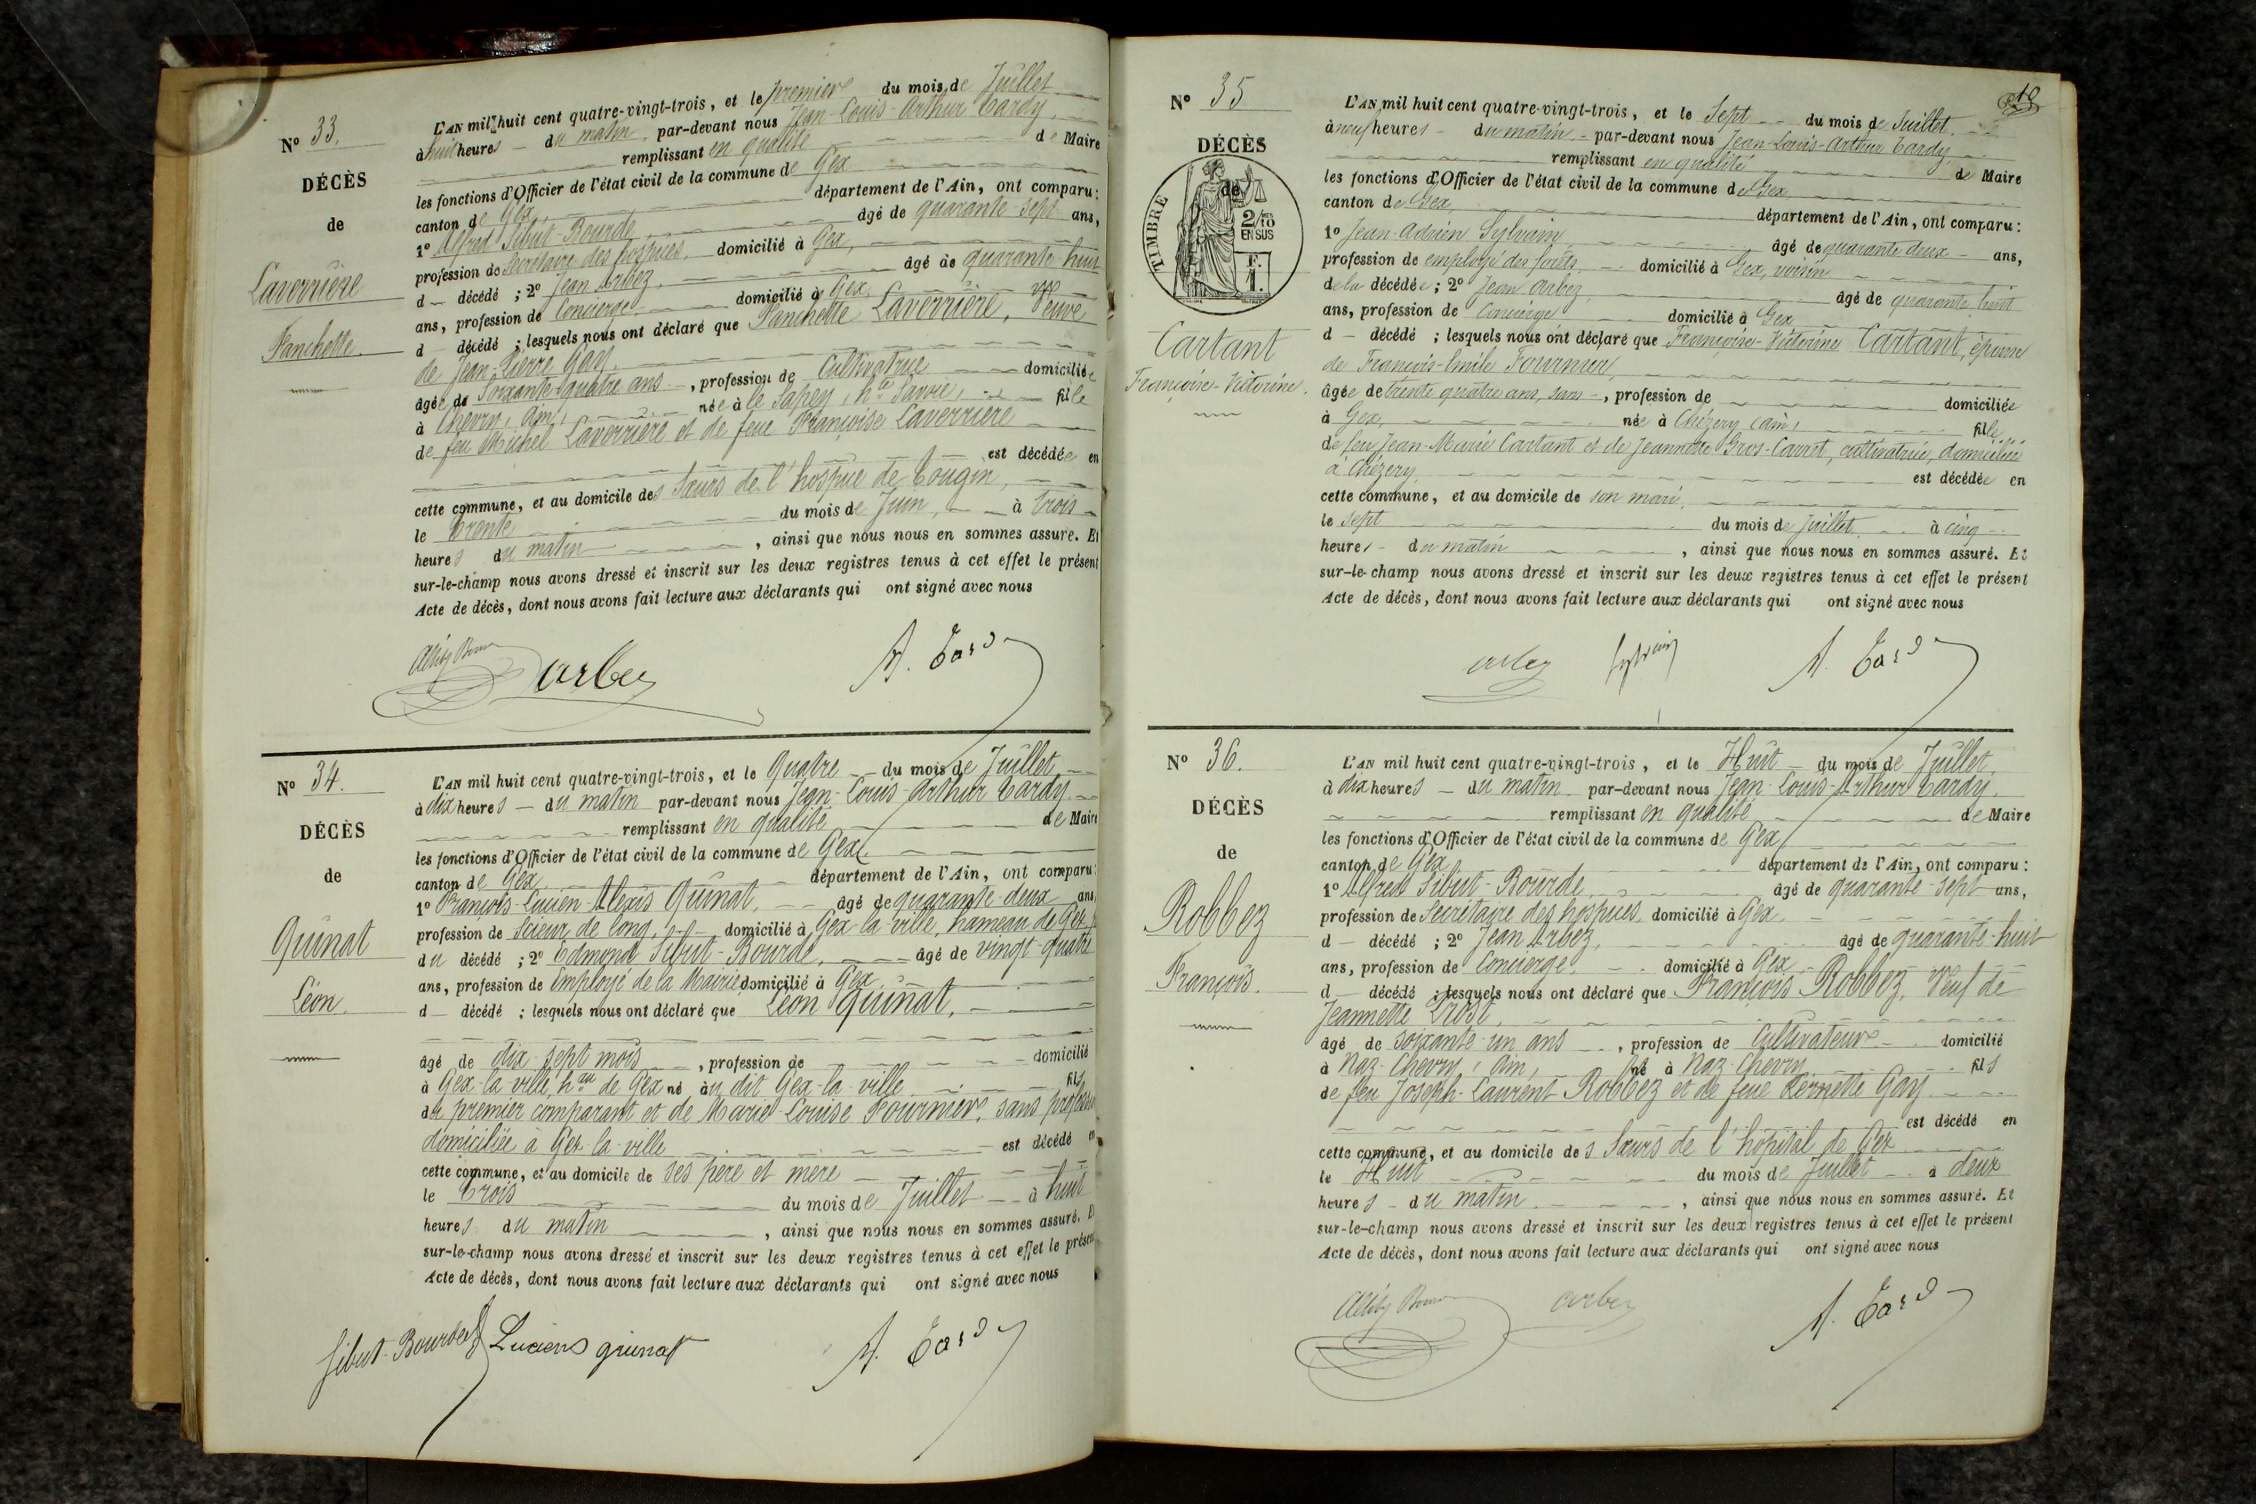 N° 33.
DÉCÈS
de
Laverrière
Fanchette.
L'AN mil huit cent quatre-vingt-trois, et le premier du mois de Juillet
à huit heures du matin par-devant nous Jean-Louis-Arthur Tardy,
remplissant en qualité de Maire
les fonctions d'Officier de l'état civil de la commune de Gex
canton de Gex département de l'Ain, ont comparu:
1° Alfred Sibut-Bourde, âgé de quarante-sept ans,
profession de Secrétaire des hospices, domicilié à Gex,
d décédé ; 2° Jean Arbez, âgé de quarante huit
ans, profession de Concierge domicilié à Gex,
d décédé ; lesquels nous ont déclaré que Fanchette Laverrière, Veuve
de Jean-Pierre Gay,
âgée de Soixante-quatre ans, profession de Cultivatrice domiciliée
à Chevry, Ain, née à le Sapey, hte Savoie, fille
de feu Michel Laverrière et de feue Françoise Laverrière
est décédée en
cette commune, et au domicile des Sœurs de l'hospice de Tougin,
le trente du mois de Juin, à trois
heures du matin, ainsi que nous nous en sommes assuré. Et
sur-le-champ nous avons dressé et inscrit sur les deux registres tenus à cet effet le présent
Acte de décès, dont nous avons fait lecture aux déclarants qui ont signé avec nous
arbez A. Tardy
N° 34.
DÉCÈS
de
Quinat
Léon.
L'AN mil huit cent quatre-vingt-trois, et le Quatre du mois de Juillet
à dix heures du matin par-devant nous Jean-Louis-Arthur Tardy
remplissant en qualité de Maire
les fonctions d'Officier de l'état civil de la commune de Gex,
canton de Gex département de l'Ain, ont comparu:
1° François-Lucien-Alexis Quinat, âgé de quarante-deux ans,
profession de Scieur de long, domicilié à Gex-la-ville, hameau de Gex,
du décédé ; 2° Edmond Sibut-Bourde, âgé de vingt-quatre
ans, profession de Employé de la Mairie, domicilié à Gex
d décédé ; lesquels nous ont déclaré que Léon Quinat,
âgé de dix-sept mois, profession de domicilié
à Gex-la-ville, hau de Gex né au dit Gex-la-ville fils
du premier comparant et de Marie-Louise Fournier, sans profession
domiciliée à Gex-la-ville est décédé en
cette commune, et au domicile de ses père et mère
le Trois du mois de Juillet à huit
heures du matin, ainsi que nous nous en sommes assuré. Et
sur-le-champ nous avons dressé et inscrit sur les deux registres tenus à cet effet le présent
Acte de décès, dont nous avons fait lecture aux déclarants qui ont signé avec nous
Sibut-Bourde Luciens quinat A. Tardy
N° 35
DÉCÈS
de
TIMBRE
2/10 EN SUS
F. 1.
Cartant
Françoise-Victorine.
L'AN mil huit cent quatre-vingt-trois, et le Sept du mois de Juillet
à neuf heures du matin par-devant nous Jean-Louis-Arthur Tardy,
remplissant en qualité de Maire
les fonctions d'Officier de l'état civil de la commune de Gex
canton de Gex, département de l'Ain, ont comparu:
1° Jean-Adrien Sylvain, âgé de quarante deux ans,
profession de employé des forêts, domicilié à Gex, voisin
de la décédée ; 2° Jean Arbez, âgé de quarante-huit
ans, profession de Concierge domicilié à Gex
d décédé ; lesquels nous ont déclaré que Françoise-Victorine Cartant, épouse
de François-Emile Fournier,
âgée de trente quatre ans, sans, profession de domiciliée
à Gex, née à Chézery (Ain) fille
de feu Jean-Marie Cartant et de Jeannette Gros-Cavret, cultivatrice, domiciliée
à Chézery, est décédée en
cette commune, et au domicile de son mari,
le sept du mois de juillet à cinq
heures du matin, ainsi que nous nous en sommes assuré. Et
sur-le-champ nous avons dressé et inscrit sur les deux registres tenus à cet effet le présent
Acte de décès, dont nous avons fait lecture aux déclarants qui ont signé avec nous
arbez Sylvain A. Tardy
N° 36.
DÉCÈS
de
Robbez
François.
L'AN mil huit cent quatre-vingt-trois, et le Huit du mois de Juillet
à dix heures du matin par-devant nous Jean-Louis-Arthur Tardy,
remplissant en qualité de Maire
les fonctions d'Officier de l'état civil de la commune de Gex
canton de Gex département de l'Ain, ont comparu:
1° Alfred Sibut-Bourde, âgé de quarante-sept ans,
profession de Secrétaire des hospices, domicilié à Gex
d décédé ; 2° Jean Arbez, âgé de quarante-huit
ans, profession de Concierge domicilié à Gex
d décédé ; lesquels nous ont déclaré que François Robbez, Veuf de
Jeannette Prost,
âgé de soixante-un ans, profession de Cultivateur domicilié
à Naz-Chevry, Ain, né à Naz-Chevry fils
de feu Joseph-Laurent Robbez et de feue Pernette Gay
est décédé en
cette commune, et au domicile des Sœurs de l'hôpital de Gex
le Huit du mois de Juillet à deux
heures du matin, ainsi que nous nous en sommes assuré. Et
sur-le-champ nous avons dressé et inscrit sur les deux registres tenus à cet effet le présent
Acte de décès, dont nous avons fait lecture aux déclarants qui ont signé avec nous
arbez A. Tardy